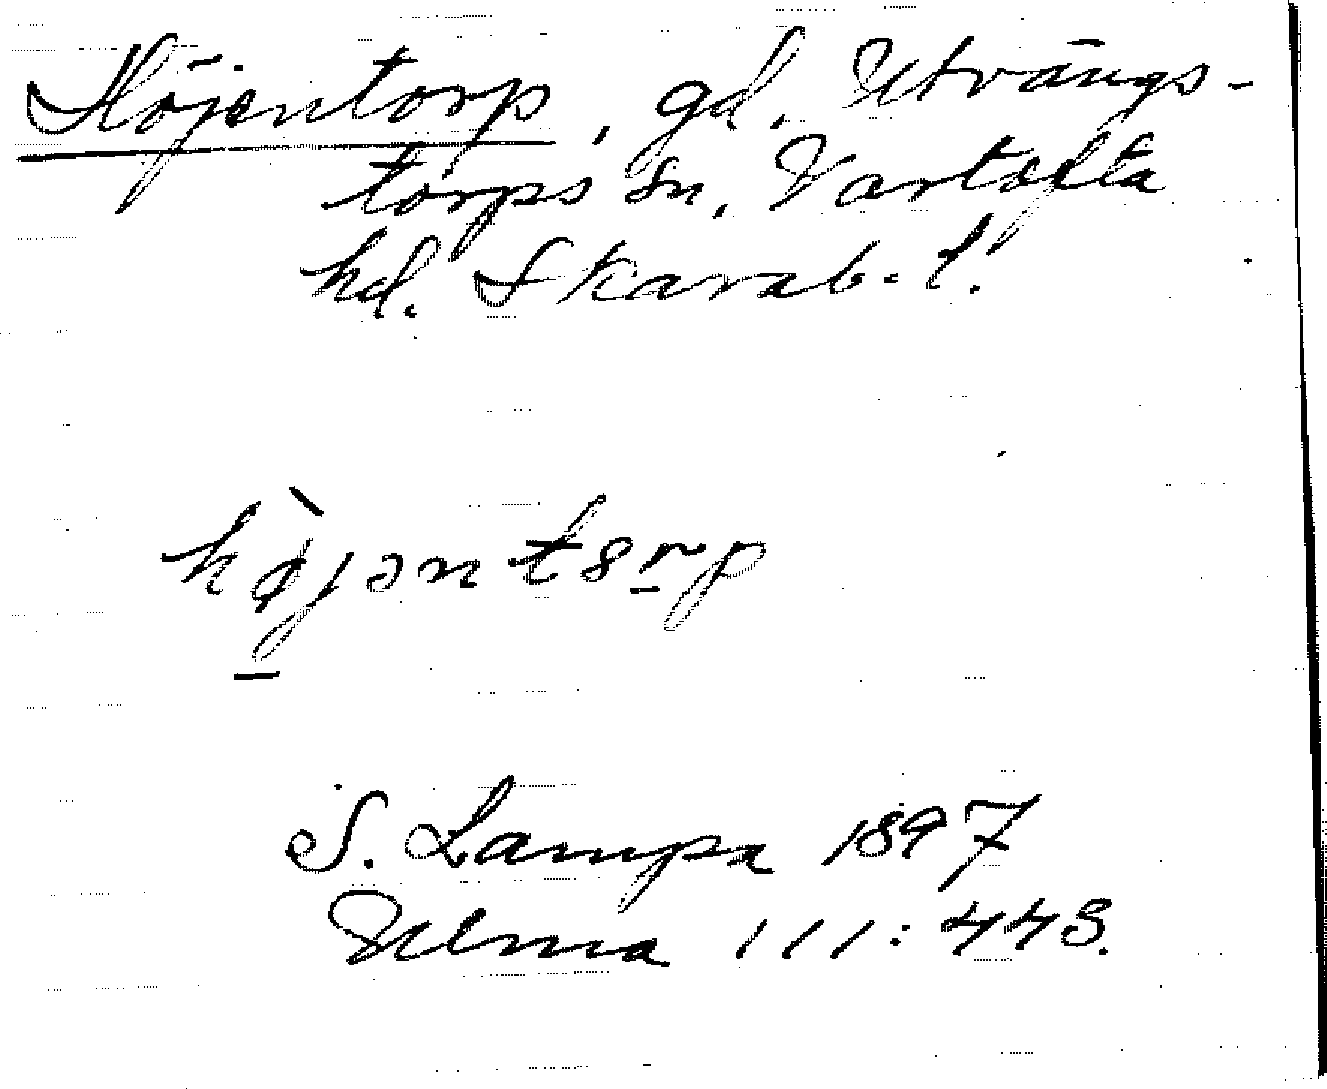 Höjentorp, gd, Utvängs-
torps sn, Vartofta
hd. Skarab. l.
hø̀jəntorp
S. Lampa 1897
Ulma 111:443.